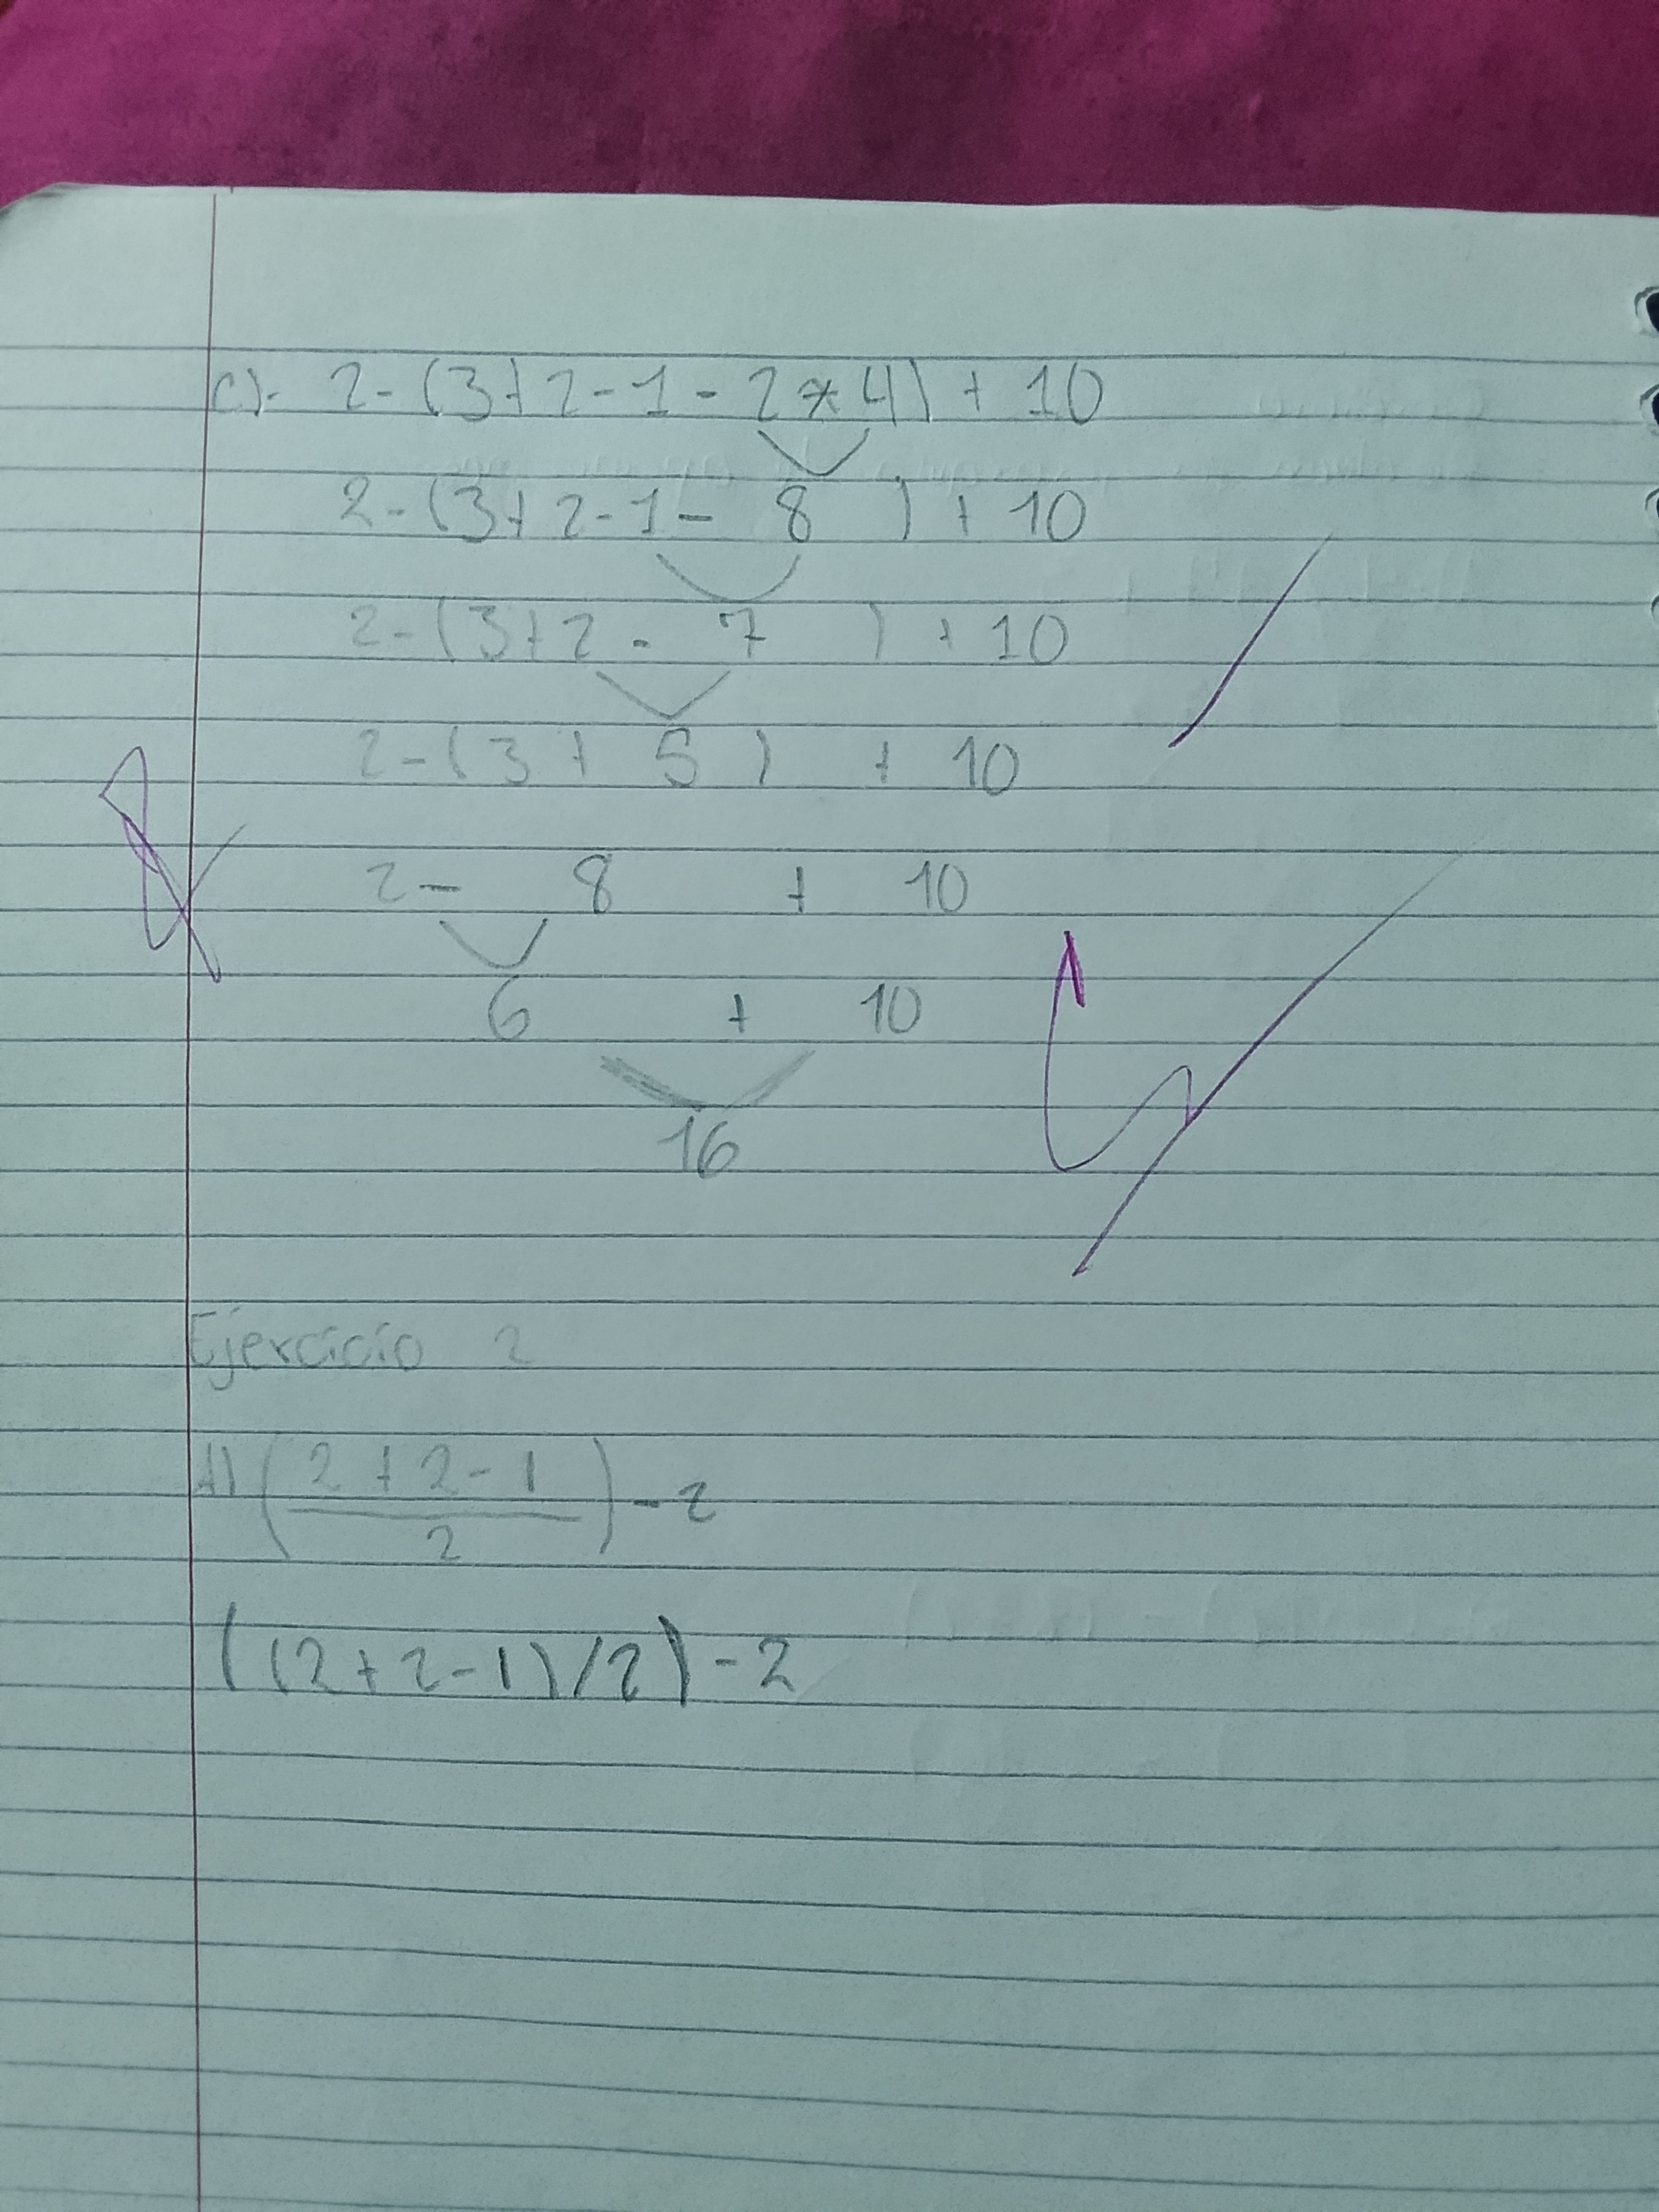 c).- 2-(3+2-1-2*4)+10
2-(3+2-1-8)+10
2-(3+2-7)+10
2-(3+5)+10
2-8+10
6+10
16
Ejercicio 2
A) (2+2-1
2) -2
((2+2-1)/2)-2